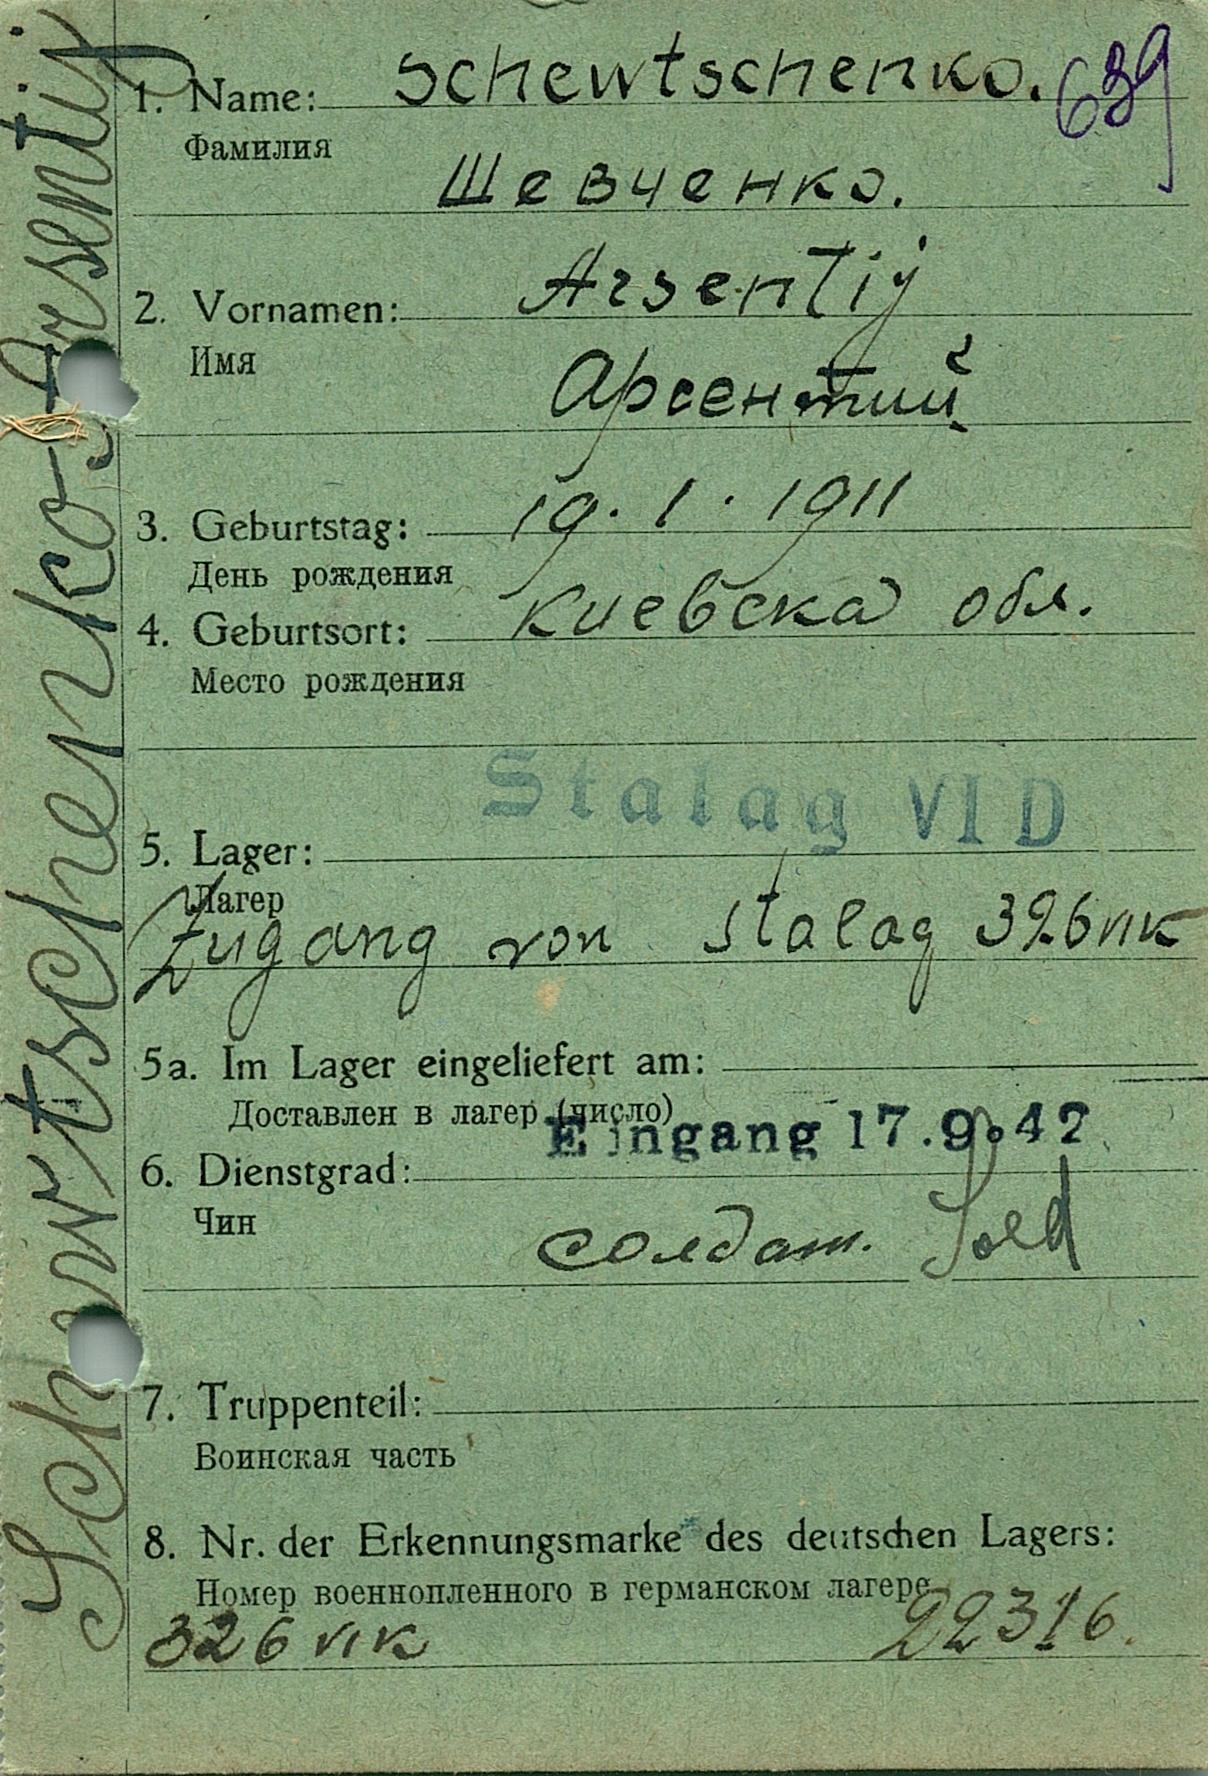 Schewtschenko, Arsentij
1. Name: Schewtschenko. 639
Фамилия
Шевченко.
2. Vornamen: Arsentij
Имя
Арсентий
3. Geburtstag: 19. 1. 1911
День рождения
4. Geburtsort: киевска обл.
Место рождения
Stalag VI D
5. Lager:
Лагер
Zugang von Stalag 326 VIK
5a. Im Lager eingeliefert am:
Доставлен в лагер (число)
Eingang 17.9.42
6. Dienstgrad:
Чин
солдат. Sold
7. Truppenteil:
Воинская часть
8. Nr. der Erkennungsmarke des deutschen Lagers:
Номер военнопленного в германском лагере
326 VIK 22316.